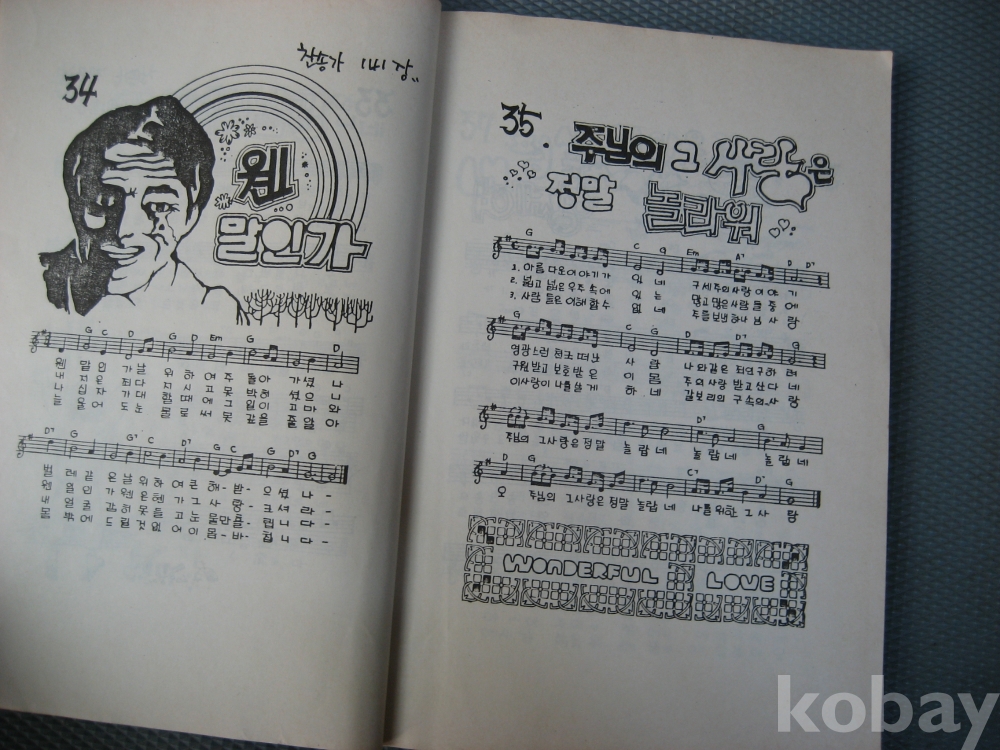 찬송가 141장
34
웬
말인가
G C D G D Em G D
웬 말인가 날 위하여 주 돌아 가셨나
내 지은 죄 다 지시고 못 박히셨으니
나 십자가 대할 때에 그 일이 고마와
늘 울어도 눈물로써 못 갚을 줄 알아
D7 G G7 C D7 G C G D7 G
벌레같은 날 위하여 큰 해-받-으셨나-
웬 일인가 웬 은혠가 그 사랑-크셔라-
내 얼굴 감히 못 들고 눈물만 흘-립니다-
몸 밖에 드릴 것 없어 이 몸-바-칩니다-
35.
주님의 그 사랑은
정말 놀라워
G C G Em A7 D D7
1. 아름다운 이야기가 있네 구세주의 사랑이야기
2. 넓고 넓은 우주 속에 있는 많고 많은 사람들 중에
3. 사람들은 이해할 수 없네 주를 보낸 하나님 사랑
G C G D7 G
영광스런 천국 떠난 사람 나와같은 죄인구하려
구원받고 보호받은 이몸 주의 사랑 받고 산다네
이사랑이 나를 살게 하네 갈보리의 구속의 사랑
G D7 G
주님의 그 사랑은 정말 놀랍네 놀랍네 놀랍네
D G C7 D7 G
오 주님의 그사랑은 정말 놀랍네 나를 위한 그 사랑
WONDERFUL LOVE
kobay